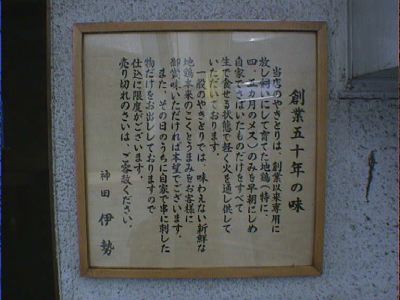 創業五十年の味
当店のやきとりは、創業以来専用に
放し飼いにして育てた地鶏(特に、
四、五カ月のメス)のみを早朝にしめ
自家でさばいたものだけをすべて
生で食せる状態で軽く火を通し供して
いただいております。
一般のやきとりでは、味わえない新鮮な
地鶏本来のこくとうまみをお客様に
御賞味いただければ本望でございます。
また、その日のうちに自家で串に刺した
物だけをお出ししておりますので
仕込に限度がございます。
売り切れのさいは、ご容赦ください。
神田 伊勢